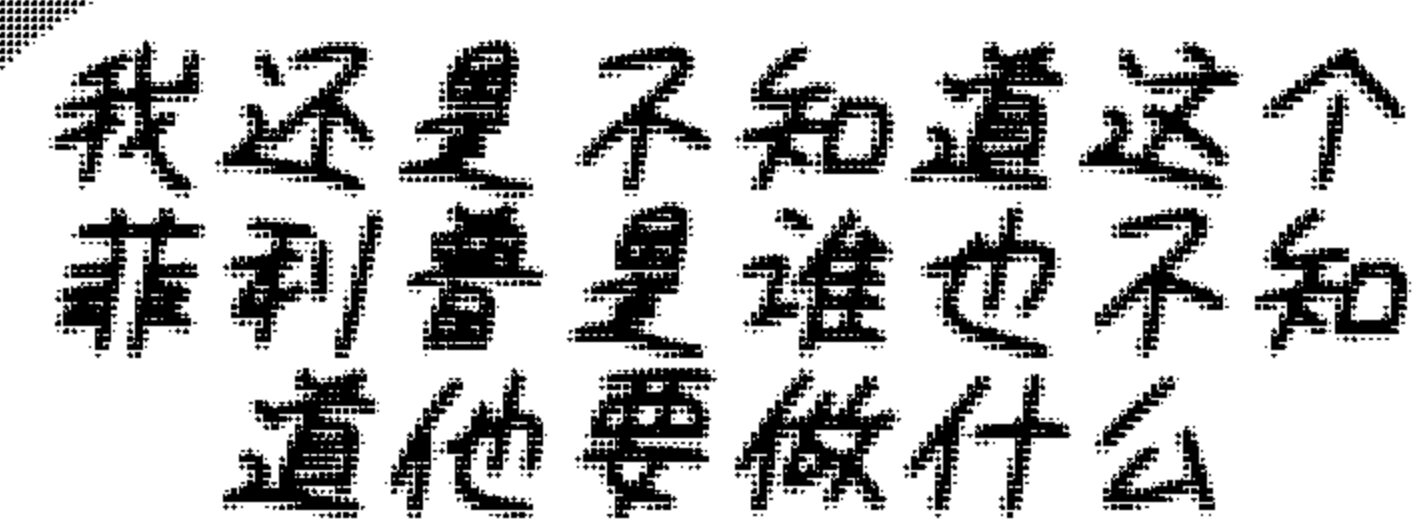 我还是不知道这个
菲利普是谁也不知
道他要做什么